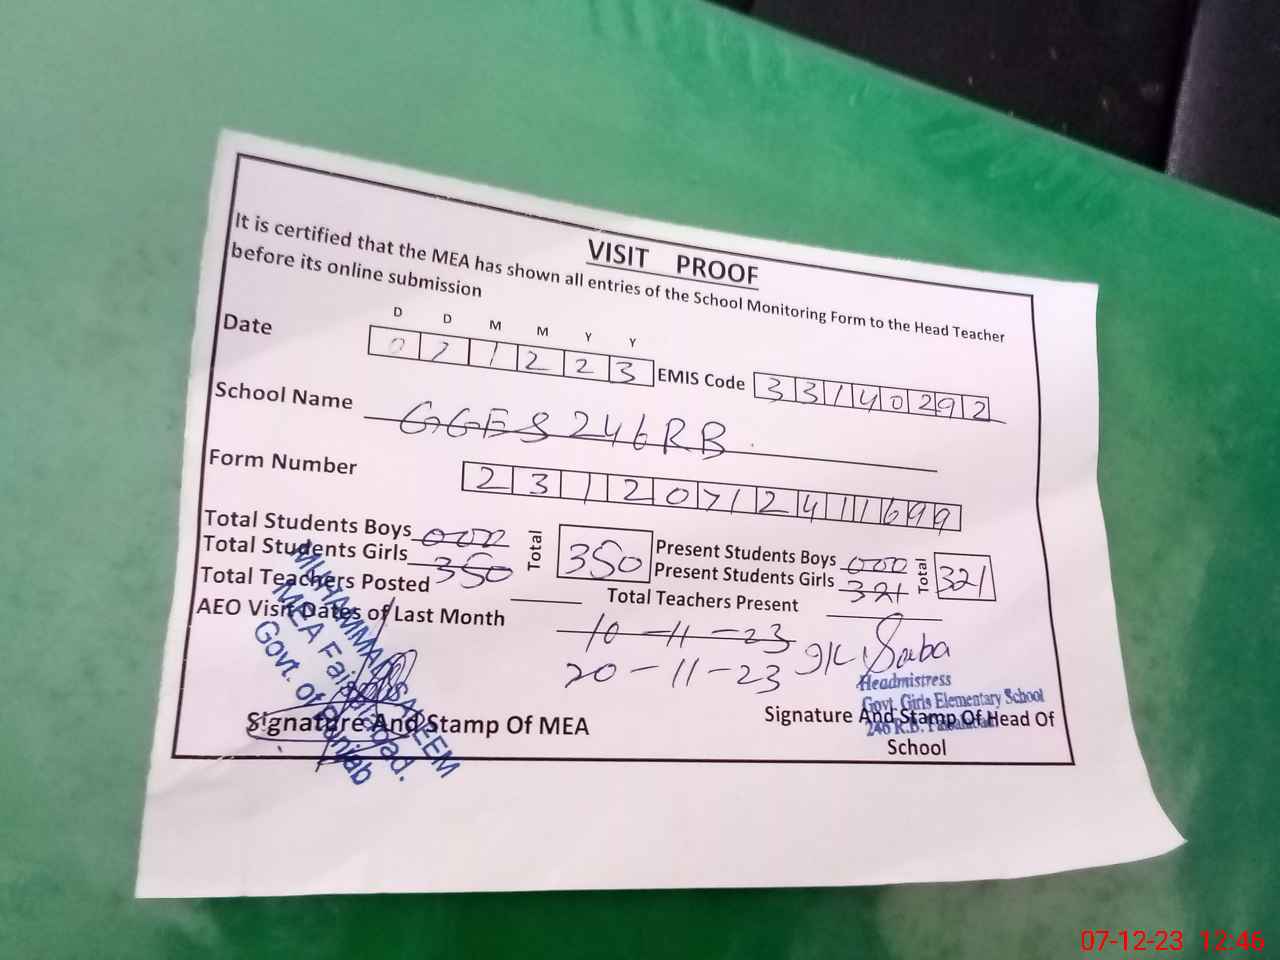 VISIT PROOF
It is certified that the MEA has shown all entries of the School Monitoring Form to the Head Teacher
before its online submission
D D M M Y Y
Date 0 7 1 2 2 3 EMIS Code 3 3 1 4 0 2 9 2
School Name GGES 246 RB
Form Number 2 3 1 2 0 7 1 2 4 1 1 6 9 9
Total Students Boys 000 Total 350 Present Students Boys 000 Total 321
Total Students Girls 350 Present Students Girls 321
Total Teachers Posted Total Teachers Present
AEO Visit Dates of Last Month 10-11-23
20-11-23
Saba
MUHAMMAD SALEEM
MEA Faisalabad.
Govt. of Punjab
Headmistress
Govt. Girls Elementary School
246 R.B. Faisalabad
Signature And Stamp Of MEA
Signature And Stamp Of Head Of
School
07-12-23 12:46